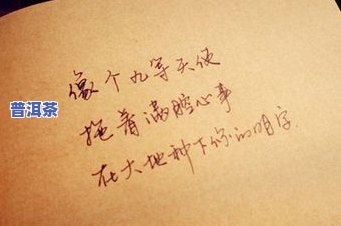 像个九等天使
拖着满腔心事
在大地种下你的名字
普洱茶